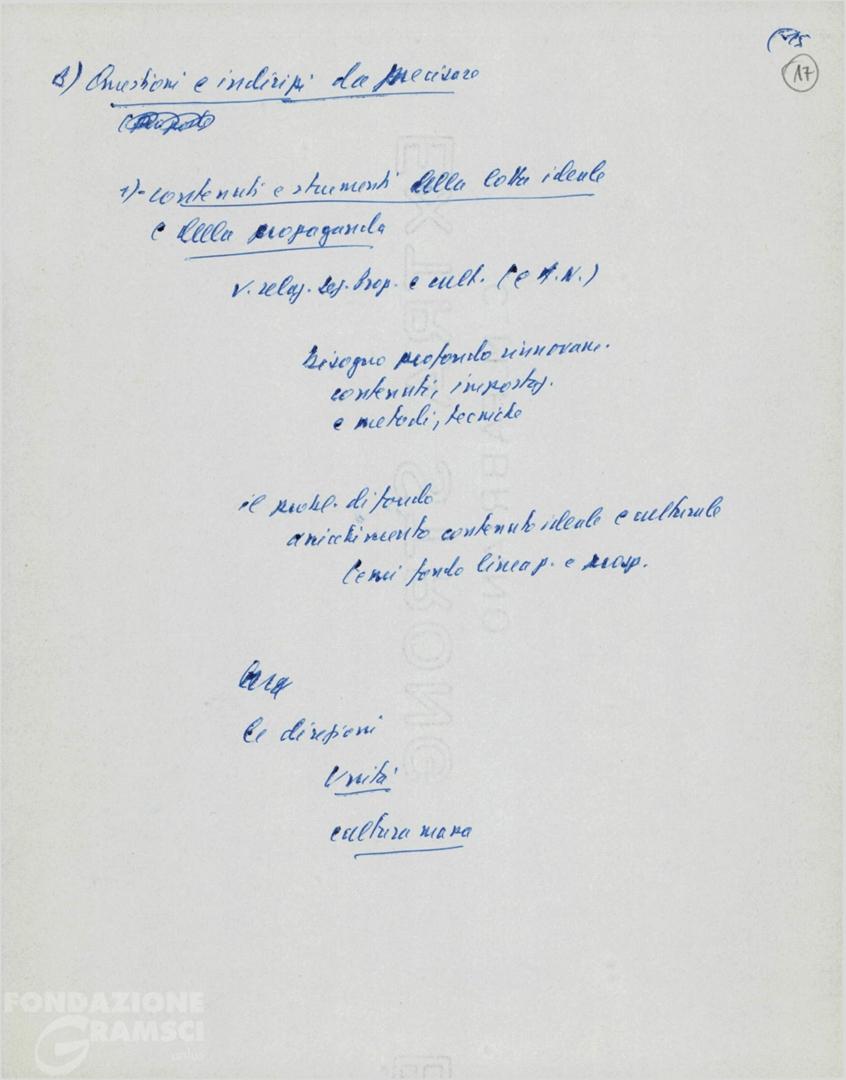 15
17
B) Questioni e indirizzi da precisare
1)- contenuti e strumenti della lotta ideale
e della propaganda
v. relaz. Sez. Prop. e cult. (e A.N.)
bisogno profondo rinnovam.
contenuti, impostaz.
e metodi, tecniche
il probl. di fondo
arricchimento contenuto ideale e culturale
temi fondo linea p. e prosp.
le direzioni
Unità
cultura mara
EXTRA STRONG
FABRIANO
FONDAZIONE
GRAMSCI
onlus